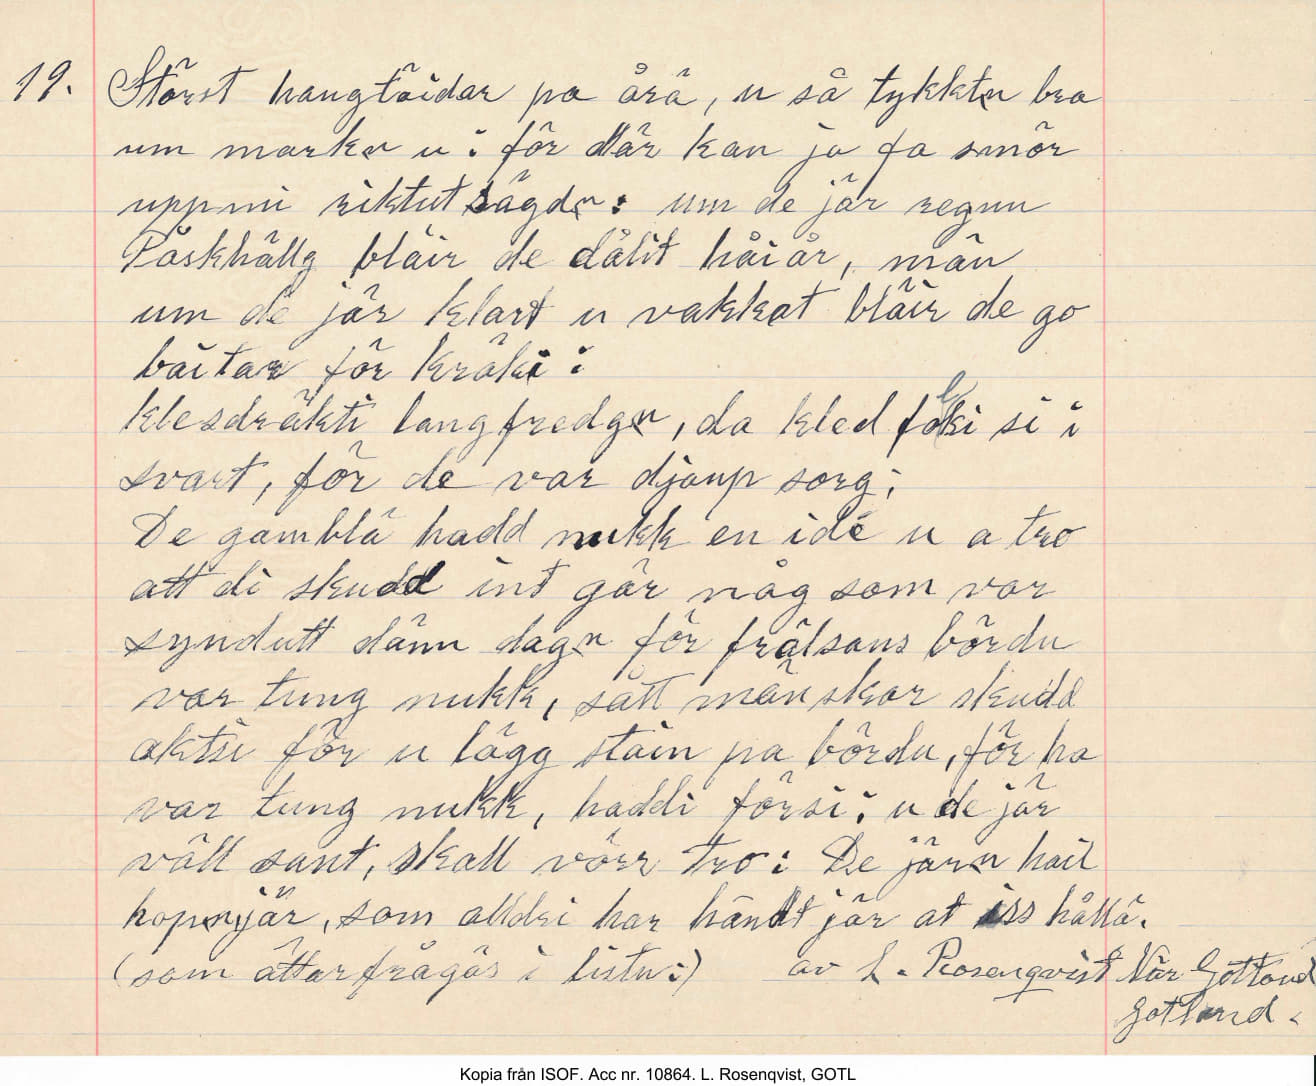 19. Störst haugtäidar pa årä, u så tykktn bra
um markn u: för där kan ja fa smör
uppmi riktut sägdn: um de jär regnu
Påskhällg bläir de dålit håiår, män
um de jär klart u vakkat bläir de go
bäitar för kräki:
klesdräkti langfredgn, da kled folki si i
svart, för de var djaup sorg;
De gamblä hadd nukk en idé u a tro
att di skudd int gär någ som var
syndutt dänn dagn för frälsans bördu
var tung nukk, sått mänskar skudd
aktsi för u lägg stain pa bördu, för ha
var tung nukk, haddi försi: u de jär
väll sant, skall vörr tro: De järn hail
hopnjär, som alldri har händt jär at iss hållä.
(som ättarfrågäs i listn:) av L. Rosenqvist När Gottland
Gotland.
Kopia från ISOF. Acc nr. 10864. L. Rosenqvist, GOTL